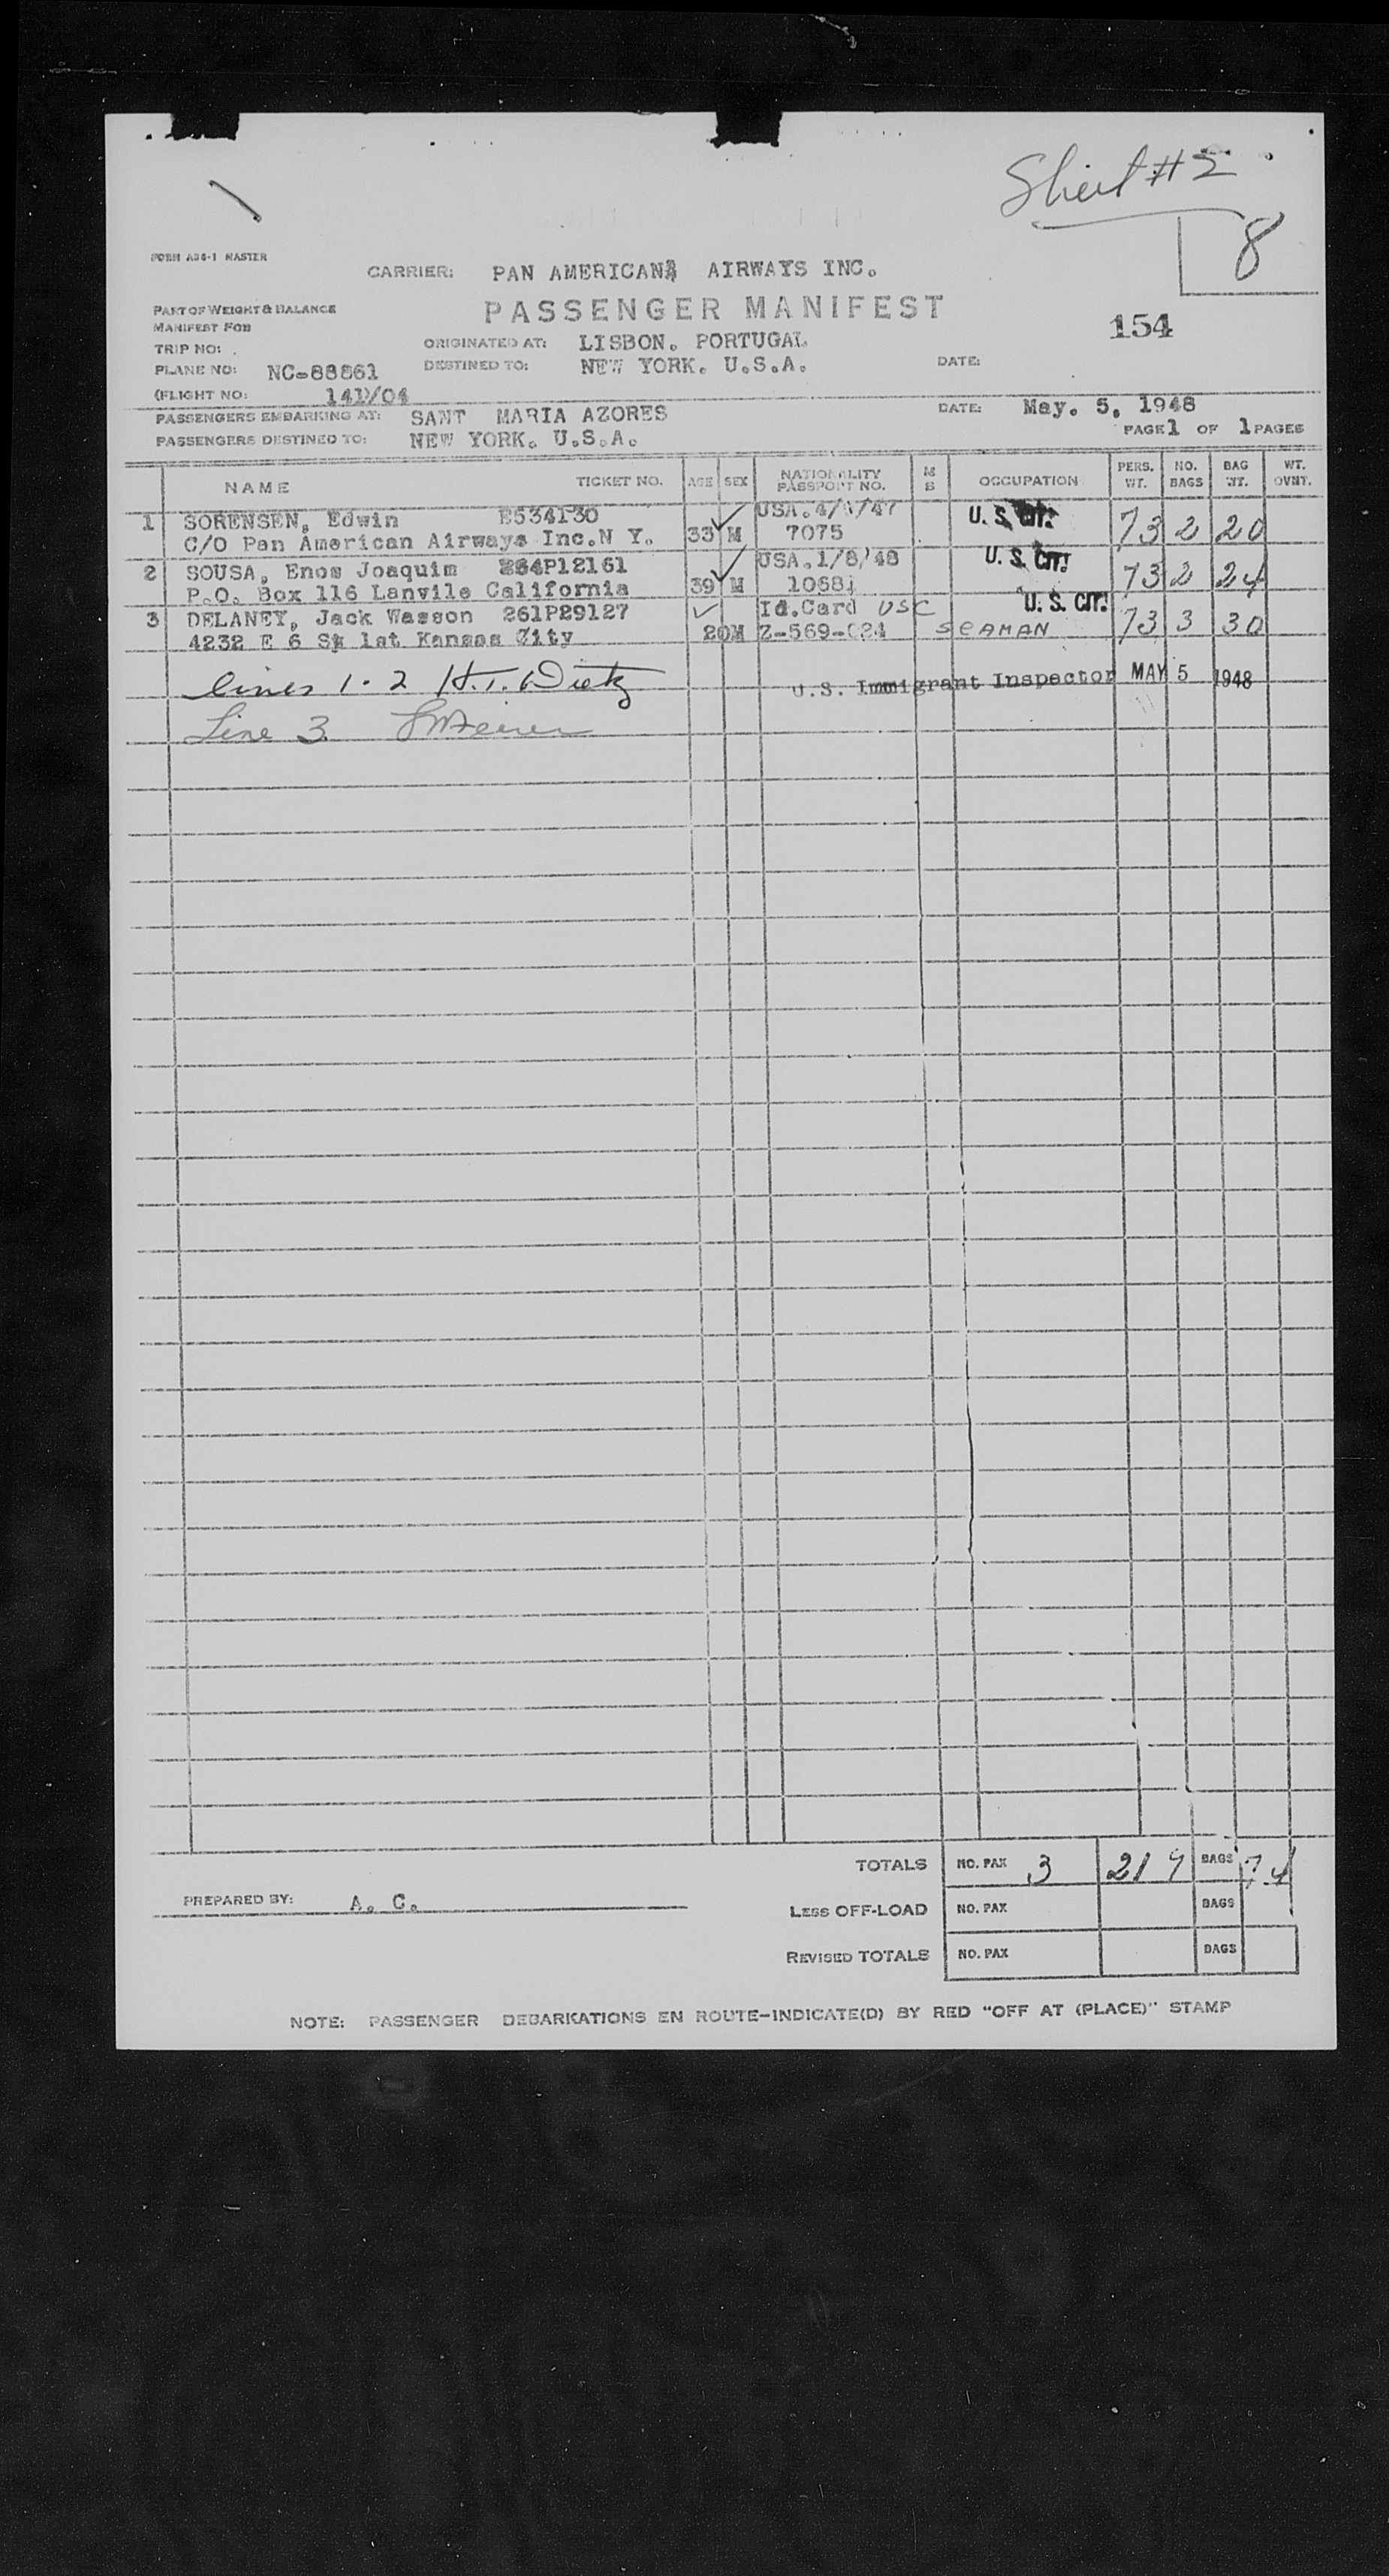 Sheet #2
8
FORM A36-1 MASTER
CARRIER: PAN AMERICANA AIRWAYS INC.
PART OF WEIGHT & BALANCE
PASSENGER MANIFEST
MANIFEST FOR
154
TRIP NO:
ORIGINATED AT: LISBON. PORTUGAL
PLANE NO: NC-88861 DESTINED TO: NEW YORK. U.S.A. DATE:
(FLIGHT NO: 141D/04
PASSENGERS EMBARKING AT: SANT MARIA AZORES DATE: May. 5, 1948
PASSENGERS DESTINED TO: NEW YORK. U.S.A. PAGE 1 OF 1 PAGES
NAME TICKET NO. AGE SEX NATIONALITY PASSPORT NO. M S OCCUPATION PERS. WT. NO. BAGS BAG WT. WT. OVNT.
1 SORENSEN, Edwin E534130 USA. U. S. CIT.
C/O Pan American Airways Inc.N Y. 33 M 7075 73 2 20
2 SOUSA, Enos Joaquim 264P12161 USA.1/8/48 U. S. CIT.
P.O. Box 116 Lanvile California 39 M 73 2 24
3 DELANEY, Jack Wasson 261P29127 Id.Card USC U. S. CIT.
4232 E 6 St 1st Kansas City 20 M Z-569-024 SEAMAN 73 3 30
Lines 1-2 H.T. Dietz U.S. Immigrant Inspector MAY 5 1948
Line 3
TOTALS NO. PAX 3 219 BAGS 7 74
PREPARED BY: A. C.
LESS OFF-LOAD NO. PAX BAGS
REVISED TOTALS NO. PAX BAGS
NOTE: PASSENGER DEBARKATIONS EN ROUTE-INDICATE(D) BY RED "OFF AT (PLACE)" STAMP